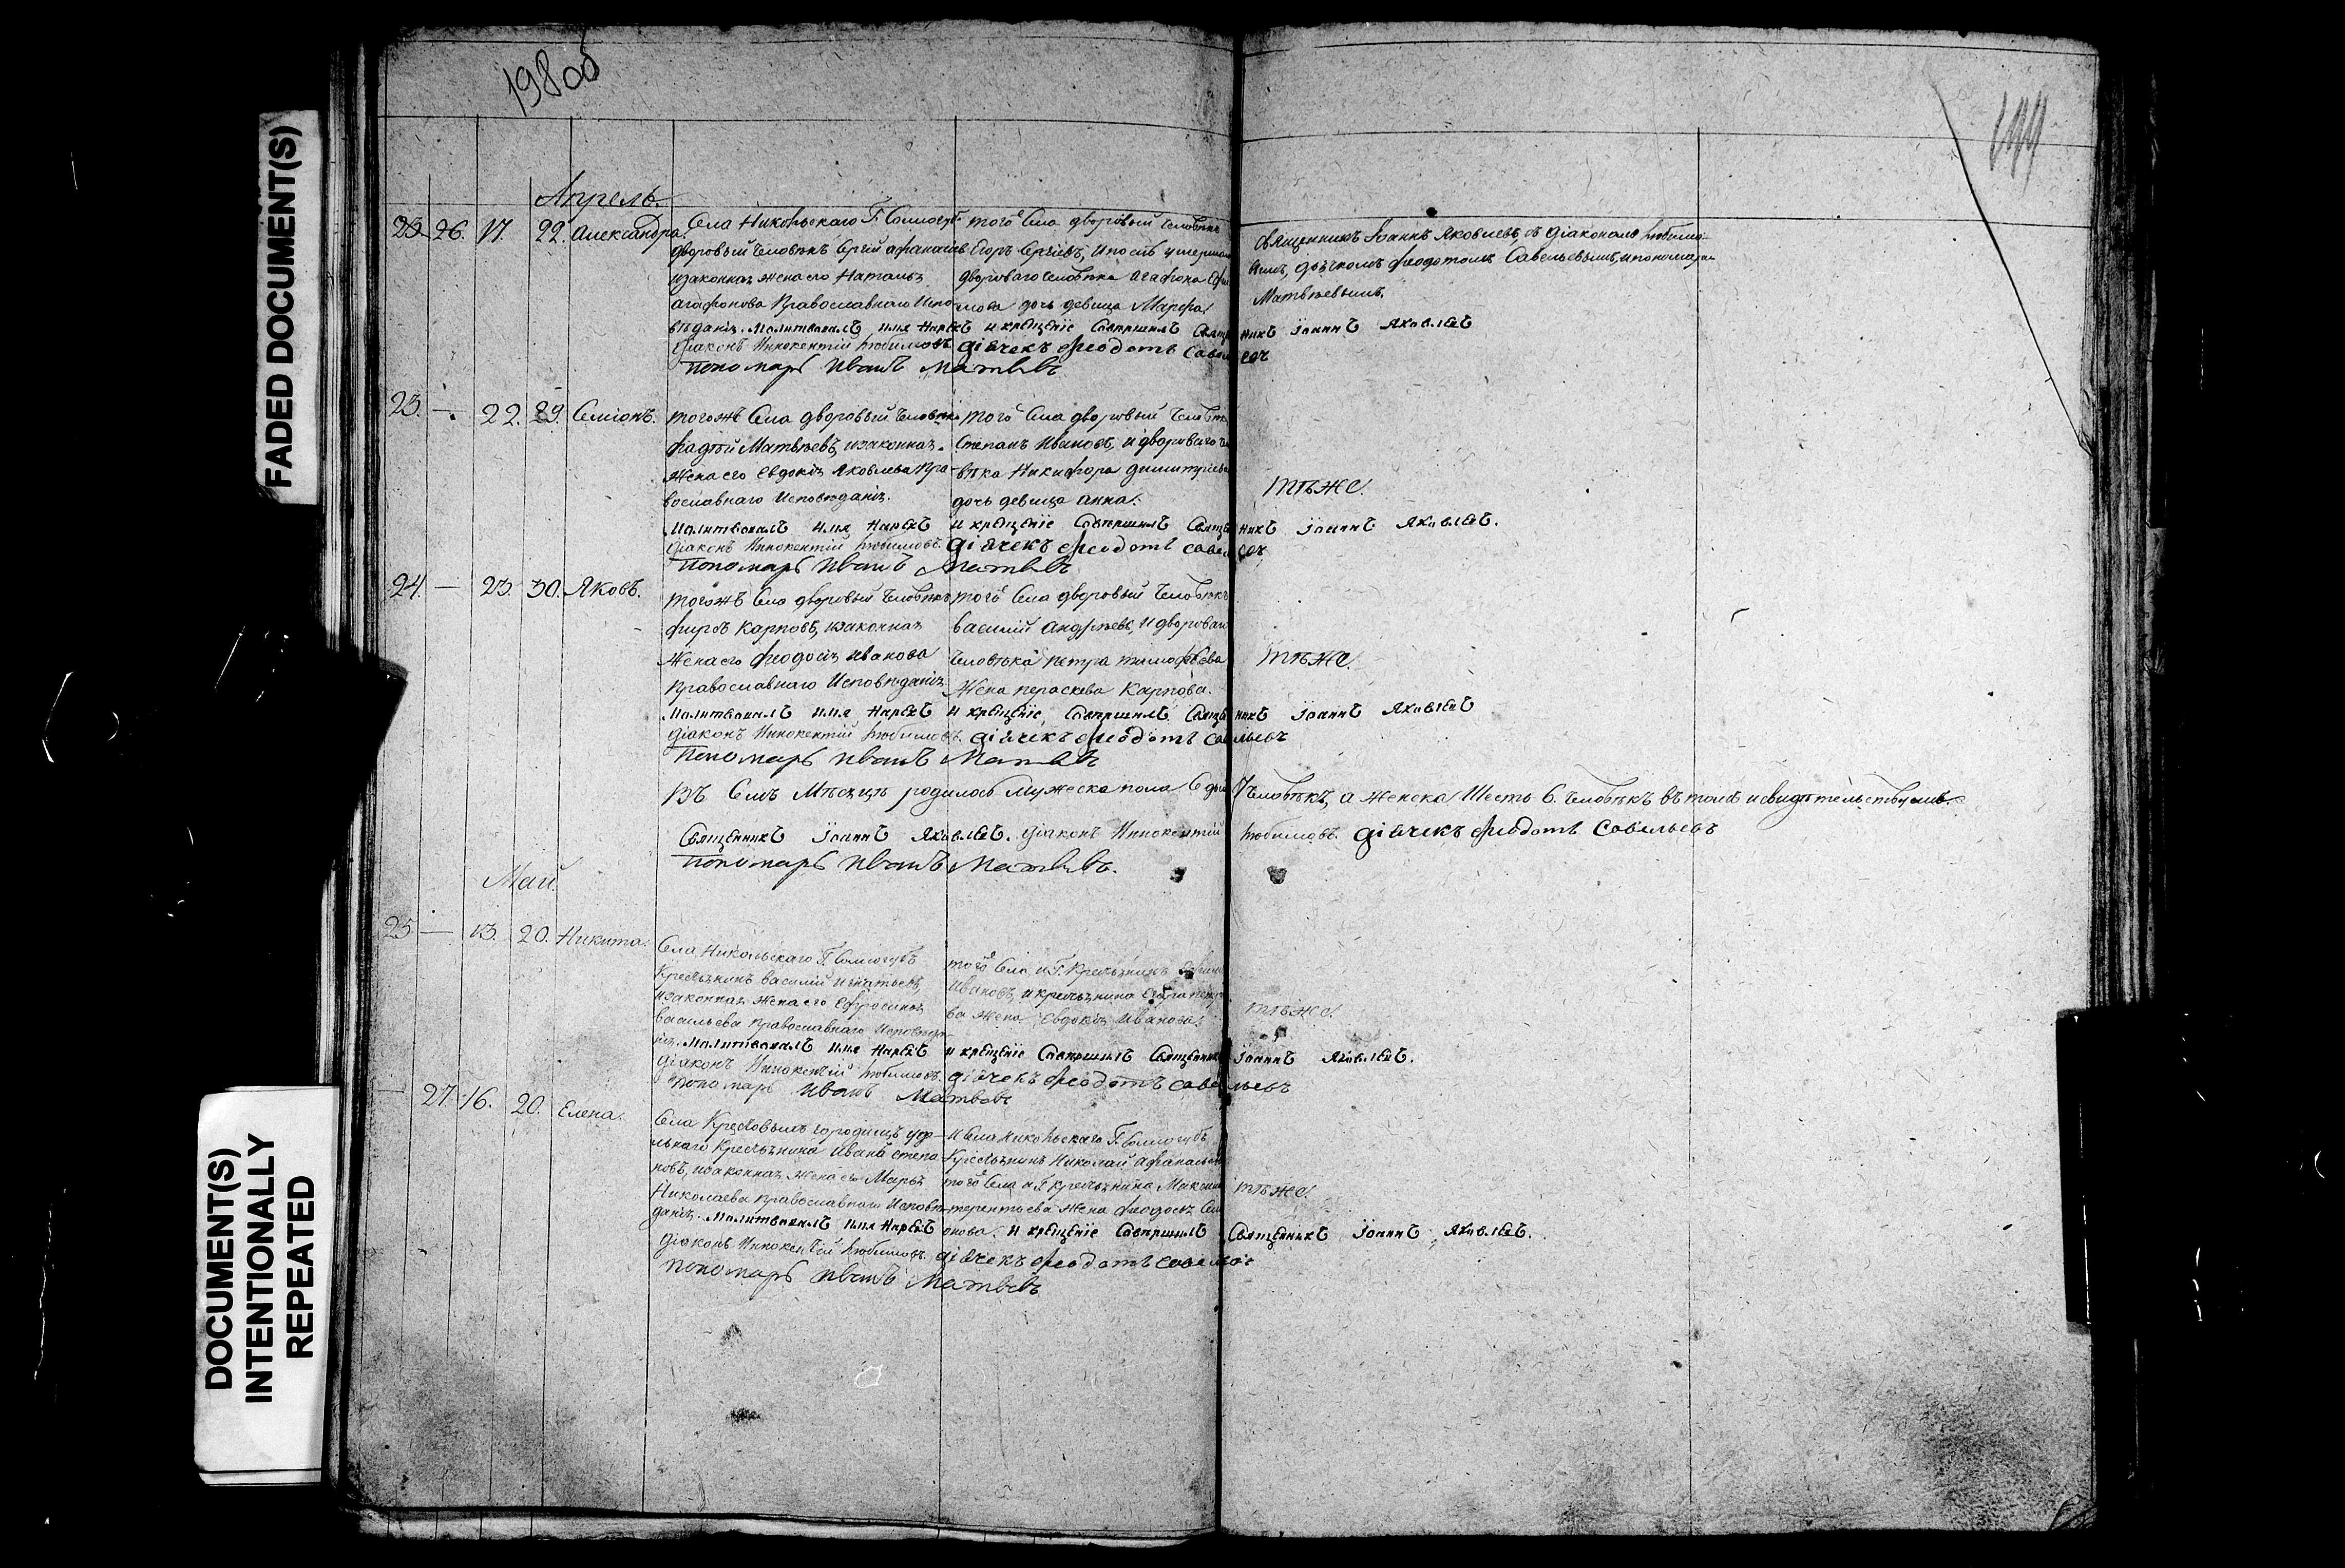 198 об
199
FADED DOCUMENT(S)
DOCUMENT(S)
INTENTIONALLY
REPEATED
Апрель.
23 26. 17. 22. Александра
Села Никольскаго Г. Соллогубъ
дворовый человѣкъ Сергій Афанасьевъ
изаконная жена его Наталья
Агафонова Православнаго Испо-
вѣданія.
того Села дворовый человѣкъ
Егоръ Сергѣевъ, и
двороваго человѣка Агафона
дочь девица Марфа.
Священникъ Іоаннъ Яковлевъ, съ Діакономъ Любимо-
вымъ, дьячкомъ Феодотомъ Савельевымъ, и пономаремъ
Матвѣевымъ.
Молитвовалъ имя Нарекъ и крещеніе Совершилъ Священникъ Іоаннъ Яковлевъ
Діаконъ Иннокентій Любимовъ. Діячекъ Феодотъ Савельевъ
Пономарь Иванъ Матвѣевъ
23. — 22. 29. Симіонъ.
тогожъ Села дворовый человѣкъ
Фадѣй Матвѣевъ, изаконная
Жена его Евдокія Яковлева Пра-
вославнаго Исповѣданія.
того Села дворовый человѣкъ
Степанъ Ивановъ, и двороваго чело-
вѣка Никифора Димитріева
дочь девица Анна.
тѣже.
Молитвовалъ имя Нарекъ и крещеніе Совершилъ Священникъ Іоаннъ Яковлевъ.
Діаконъ Иннокентій Любимовъ. Діячекъ Феодотъ Савельевъ
Пономарь Иванъ Матвѣевъ
24. — 23. 30. Яковъ.
тогожъ Села дворовый человѣкъ
Фирсъ Карповъ, изаконная
Жена его Феодосія Иванова
Православнаго Исповѣданія.
того Села дворовый человѣкъ
Василій Андрѣевъ, и двороваго
человѣка Петра Тимофѣева
Жена Пераскева Карпова.
тѣже.
Молитвовалъ имя Нарекъ и крещеніе Совершилъ Священникъ Іоаннъ Яковлевъ
Діаконъ Иннокентій Любимовъ. Діячекъ Феодотъ Савельевъ
Пономарь Иванъ Матвѣевъ
Въ Семъ Мѣсяцѣ родилось Мужеска пола 7 человѣкъ, а Женска Шесть 6. человѣкъ въ томъ и свидѣтельствуемъ.
Священникъ Іоаннъ Яковлевъ. Діаконъ Иннокентій Любимовъ. Діячекъ Феодотъ Савельевъ
Пономарь Иванъ Матвѣевъ.
Май.
25 — 13. 20. Никита.
Села Никольскаго Г. Соллогубъ
Крестьянинъ Василій Игнатьевъ,
изаконная жена его Ефросинья
Васильева Православнаго Исповѣда-
нія.
того Села и Г. Крестьянинъ
Ивановъ, и крестьянина Егора Петро-
ва жена Евдокія Иванова.
тѣже.
Молитвовалъ имя Нарекъ и крещеніе Совершилъ Священникъ Іоаннъ Яковлевъ.
Діаконъ Иннокентій Любимовъ. Діячекъ Феодотъ Савельевъ
Пономарь Иванъ Матвѣевъ
— 27 16. 20. Елена.
Села Крестовыхъ городищъ удѣ-
льнаго Крестьянина Ивана Степа-
новъ, изаконная жена его Марья
Николаева Православнаго Исповѣ-
данія.
и Села Никольскаго Г. Соллогубъ
Крестьянинъ Николай Афанасьевъ
того Села и Г. крестьянина Максима
терентьева жена Феодосья Сим-
онова.
тѣже.
Молитвовалъ имя Нарекъ и крещеніе Совершилъ Священникъ Іоаннъ Яковлевъ.
Діаконъ Иннокентій Любимовъ. Діячекъ Феодотъ Савельевъ
Пономарь Иванъ Матвѣевъ